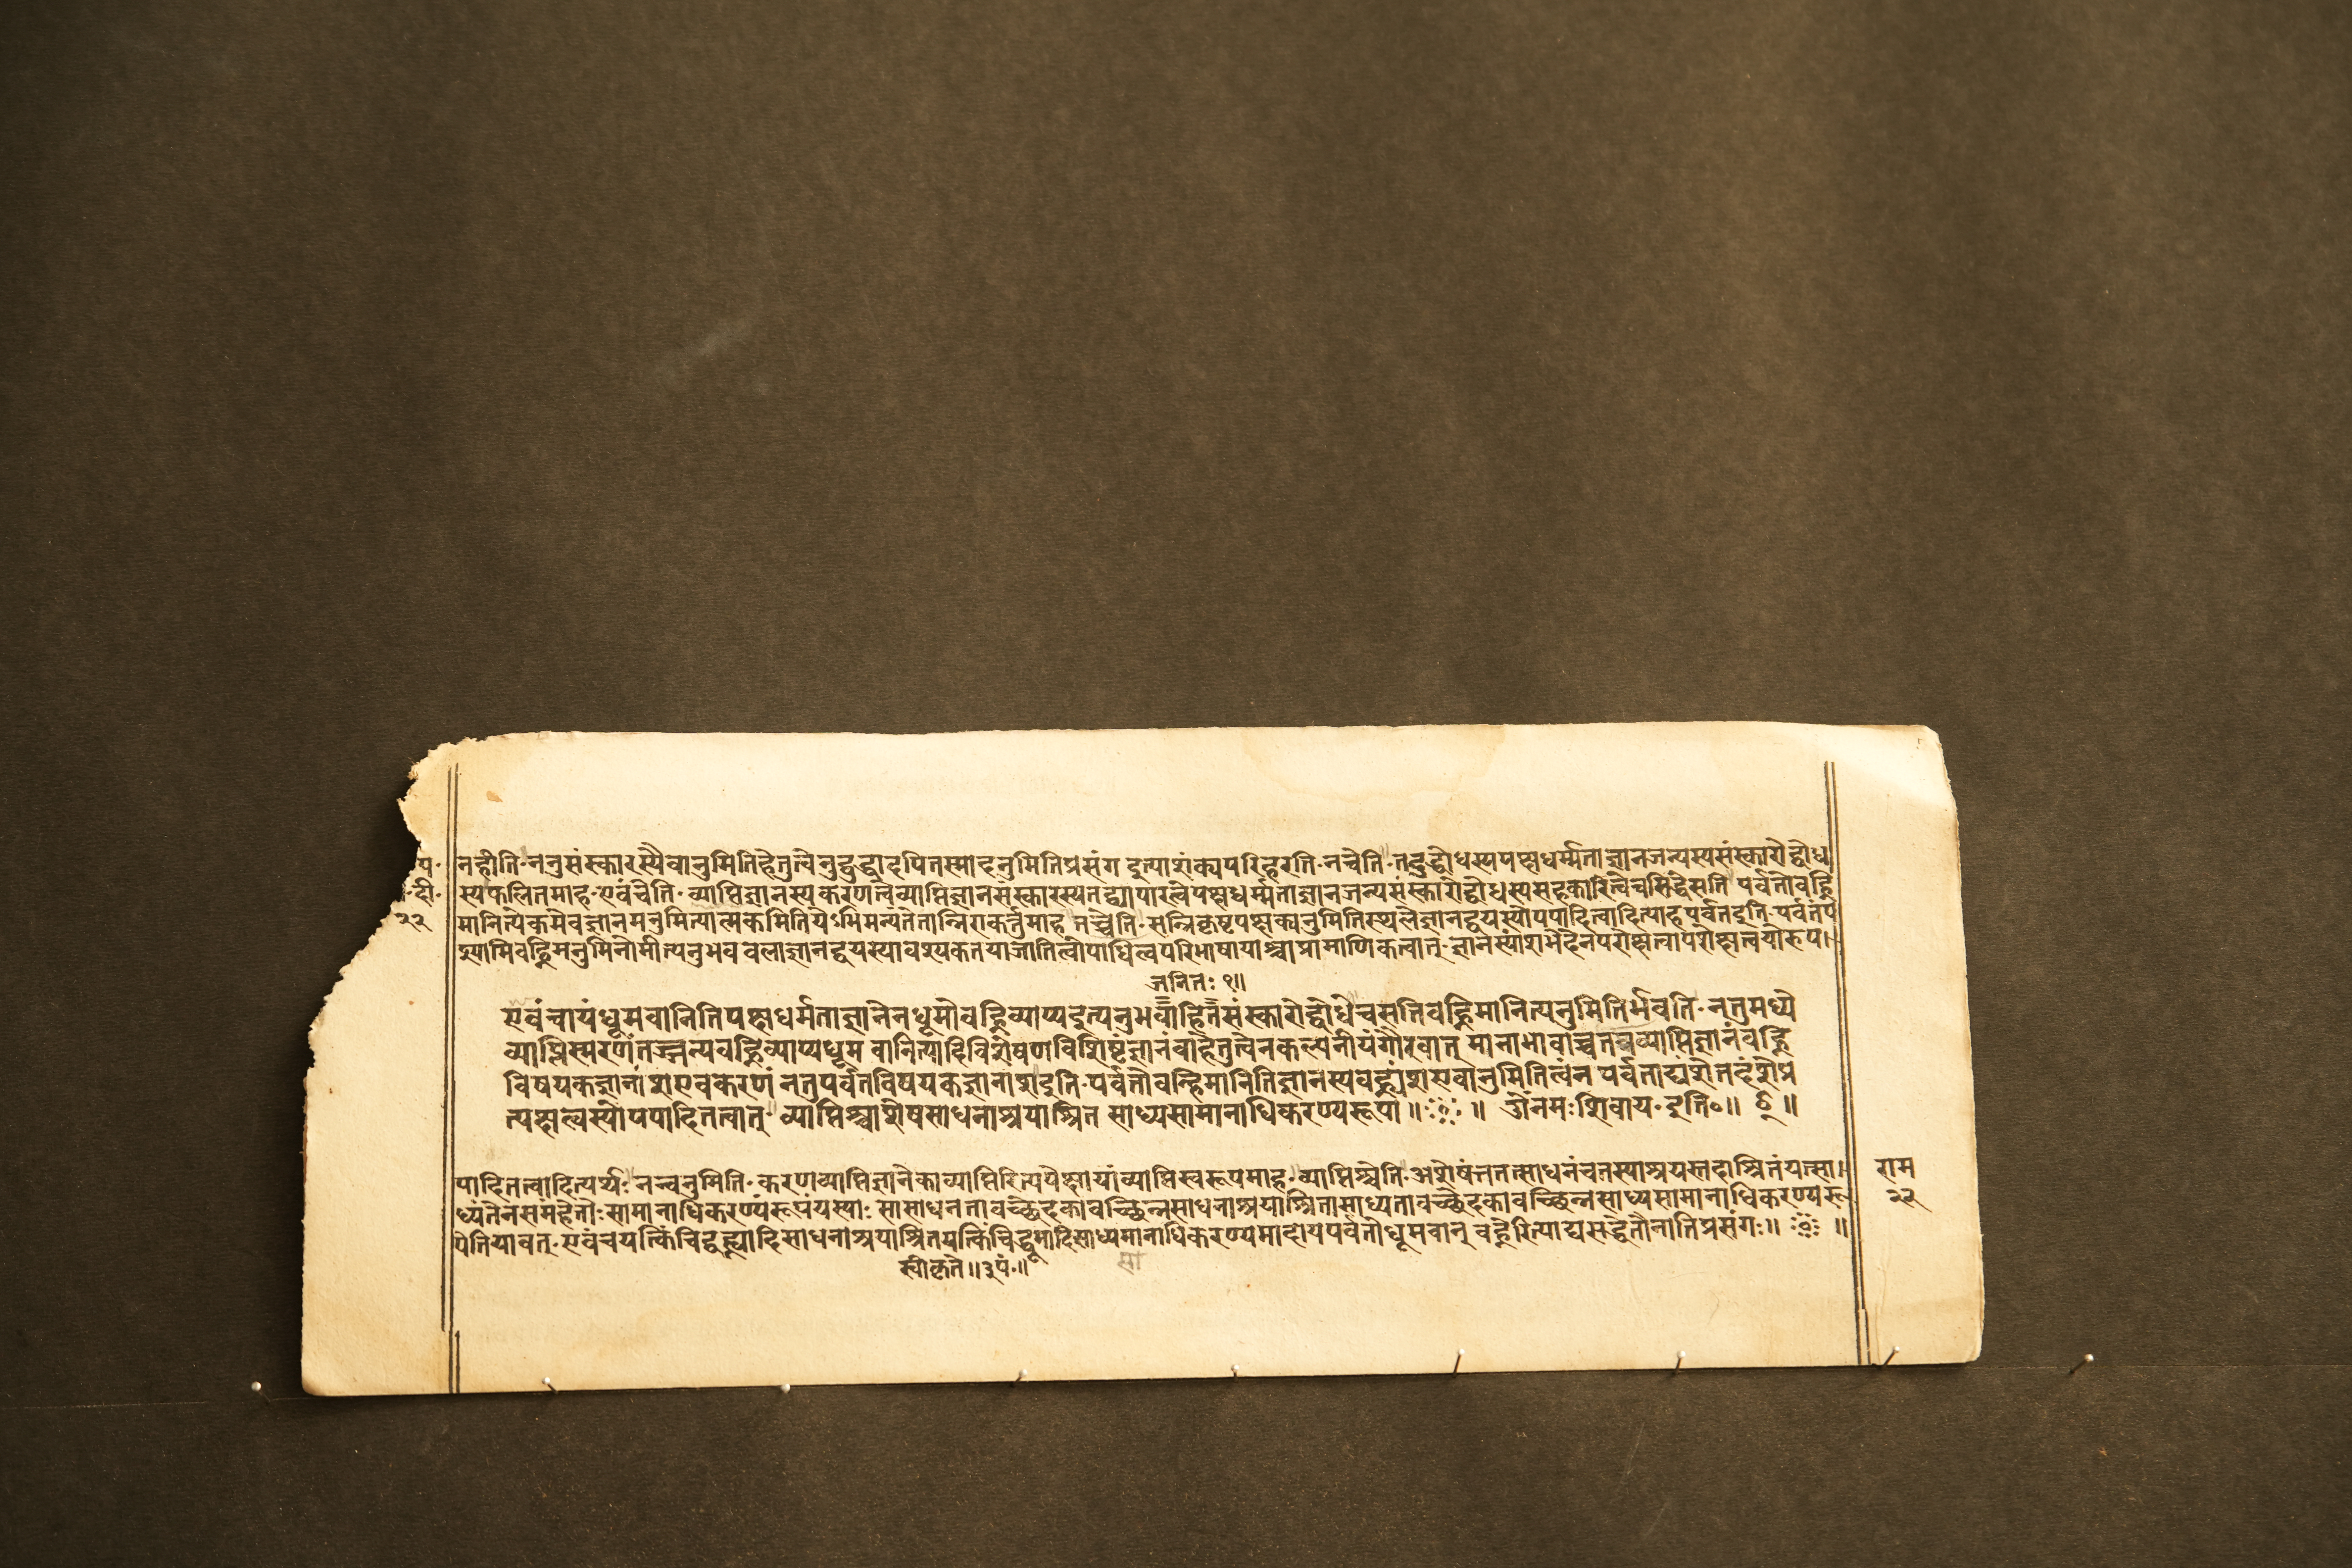 प॰ नहीति॰ ननुसंस्कारस्यैवानुमितिहेतुत्वेनुद्बुद्धादपितस्मादनुमितिप्रसंग इत्याशंक्यपरिहरति॰ नचेति॰ तदुद्बोधस्यपक्षधर्म्मताज्ञानजन्यस्यसंस्कारोद्बोध
दी॰ स्यफलितमाह॰ एवंचेति॰ व्याप्तिज्ञानस्यकरणत्वेव्याप्तिज्ञानसंस्कारस्यतद्व्यापारत्वेपक्षधर्म्मताज्ञानजन्यसंस्कारोद्बोधस्यसहकारित्वेचसिद्धेसति पर्वतोवह्नि
२२ मानित्येकमेवज्ञानमनुमित्यात्मकमितियेऽभिमन्यंतेतान्निराकर्त्तुमाह तच्चेति॰ सन्निकृष्टपक्षकानुमितिस्थलेज्ञानद्वयस्योपपादितत्वादित्याह पर्वतइति॰ पर्वतंप
श्यामिवह्निमनुमिनोमीत्यनुभवबलाज्ञानद्वयस्यावश्यकतयाजातित्वोपाधित्वपरिभाषायाश्चाप्रामाणिकत्वात्॰ ज्ञानस्यांशभेदेनपरोक्षत्वापरोक्षत्वयोरुप॥
जनितः १॥
एवंचायंधूमवानितिपक्षधर्मताज्ञानेनधूमोवह्निव्याप्यइत्यनुभवाहितसंस्कारोद्बोधेचसतिवह्निमानित्यनुमितिर्भवति॰ नतुमध्ये
व्याप्तिस्मरणंतज्जन्यवह्निव्याप्यधूम वानित्यादिविशेषणविशिष्टज्ञानंवाहेतुत्वेनकल्पनीयंगौरवात् मानाभावाच्चतच्चव्याप्तिज्ञानंवह्नि
विषयकज्ञानांशएवकरणं नतुपर्वतविषयकज्ञानांशइति॰ पर्वतोवन्हिमानितिज्ञानस्यवह्न्यंशएवानुमितित्वंन पर्वताद्यंशेतदंशेप्र
त्यक्षत्वस्योपपादितत्वात् व्याप्तिश्चाशेषसाधनाश्रयाश्रित साध्यसामानाधिकरण्यरूपा ॥ ॥ ॐनमःशिवाय॰ इति०॥ ॥
पादितत्वादित्यर्थः नन्वनुमिति॰ करणव्याप्तिज्ञानेकाव्याप्तिरित्यपेक्षायांव्याप्तिस्वरूपमाह॰ व्याप्तिश्चेति॰ अशेषंतत्साधनंचतस्याश्रयस्तदाश्रितंयत्सा॥ राम
ध्यंतेनसमहेतोः सामानाधिकरण्यंरूपंयस्याः सासाधनतावच्छेदकावच्छिन्नसाधनाश्रयाश्रितासाध्यतावच्छेदकावच्छिन्नसाध्यसामानाधिकरण्यरू २२
पेतियावत्॰ एवंचयत्किंचिद्वह्न्यादिसाधनाश्रयाश्रितयत्किंचिद्धूमादिसाध्यमानाधिकरण्यमादायपर्वतोधूमवान् वह्नेरित्याद्यसद्धेतौनातिप्रसंगः॥ ॥
स्वीकृते॥३पं॰॥ सा